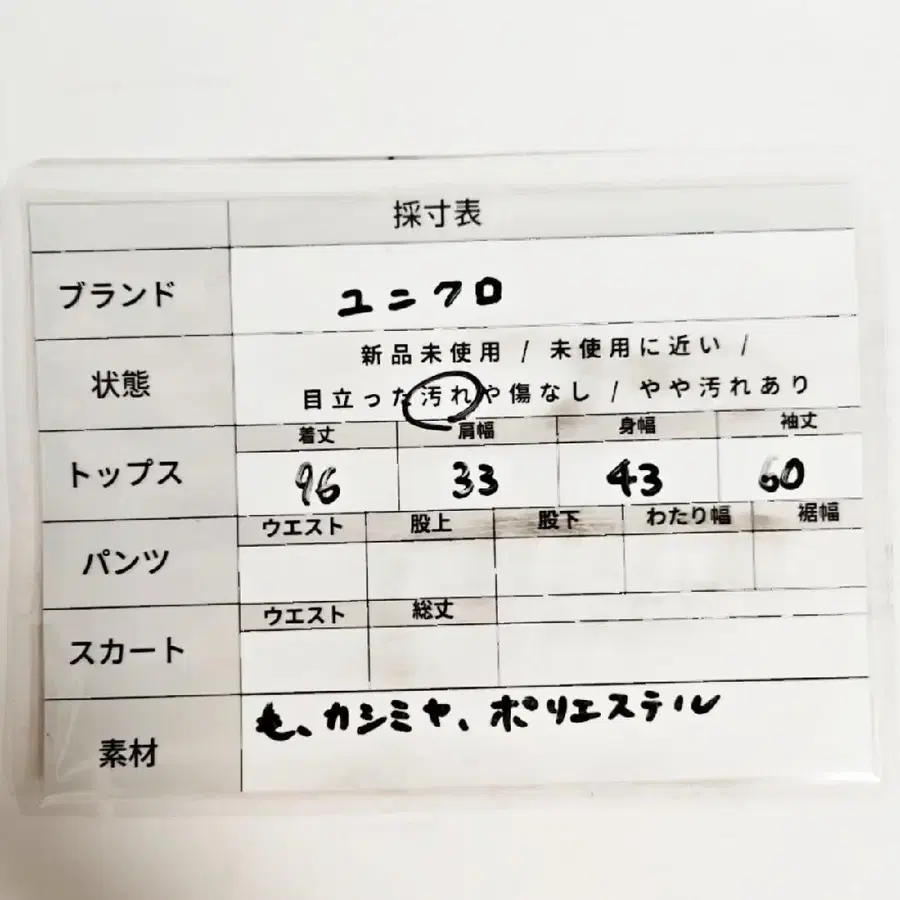 採寸表
ブランド ユニクロ
状態 新品未使用 / 未使用に近い /
目立った汚れや傷なし / やや汚れあり
着丈 肩幅 身幅 袖丈
トップス 96 33 43 60
ウエスト 股上 股下 わたり幅 裾幅
パンツ
ウエスト 総丈
スカート
素材 毛、カシミヤ、ポリエステル